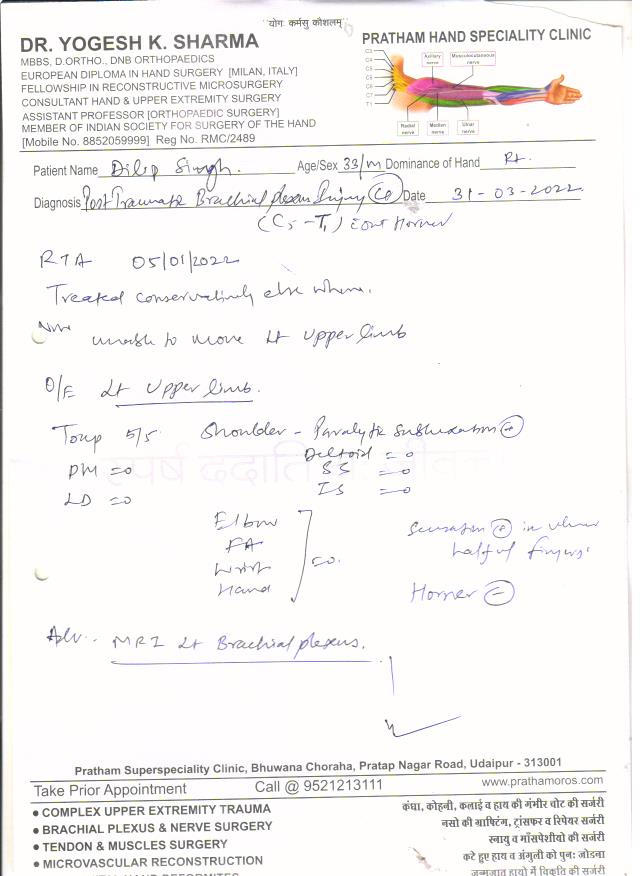 "योगः कर्मसु कौशलम्"
DR. YOGESH K. SHARMA
MBBS, D.ORTHO., DNB ORTHOPAEDICS
EUROPEAN DIPLOMA IN HAND SURGERY [MILAN, ITALY]
FELLOWSHIP IN RECONSTRUCTIVE MICROSURGERY
CONSULTANT HAND & UPPER EXTREMITY SURGERY
ASSISTANT PROFESSOR [ORTHOPAEDIC SURGERY]
MEMBER OF INDIAN SOCIETY FOR SURGERY OF THE HAND
[Mobile No. 8852059999] Reg No. RMC/2489
PRATHAM HAND SPECIALITY CLINIC
C3
C4
C5
C6
C7
T1
Axillary nerve
Musculocutaneous nerve
Radial nerve
Median nerve
Ulnar nerve
Patient Name Dilip Singh. Age/Sex 33/M Dominance of Hand Rt.
Diagnosis Post Traumatic Brachial plexus Injury Date 31-03-2022
(C5-T1) Horner
RTA 05/01/2022
Treated conservatively else where.
unable to move Lt Upper limb
O/E Lt Upper limb.
5/5 Shoulder - Paralytic Subluxation +
Deltoid = 0
PM = 0 SS = 0
LD = 0 IS = 0
Elbow
FA
Wrist
Hand
= 0.
Sensation + in ulnar
half of fingers
Horner -
Adv. MRI Lt Brachial plexus.
Pratham Superspeciality Clinic, Bhuwana Choraha, Pratap Nagar Road, Udaipur - 313001
Take Prior Appointment Call @ 9521213111 www.prathamoros.com
• COMPLEX UPPER EXTREMITY TRAUMA
• BRACHIAL PLEXUS & NERVE SURGERY
• TENDON & MUSCLES SURGERY
• MICROVASCULAR RECONSTRUCTION
कंधा, कोहनी, कलाई व हाथ की गंभीर चोट की सर्जरी
नसो की ग्राफ्टिंग, ट्रांसफर व रिपेयर सर्जरी
स्नायु व माँसपेशीयो की सर्जरी
कटे हुए हाथ व अंगुली को पुनः जोडना
जन्मजात हाथो में विकृति की सर्जरी